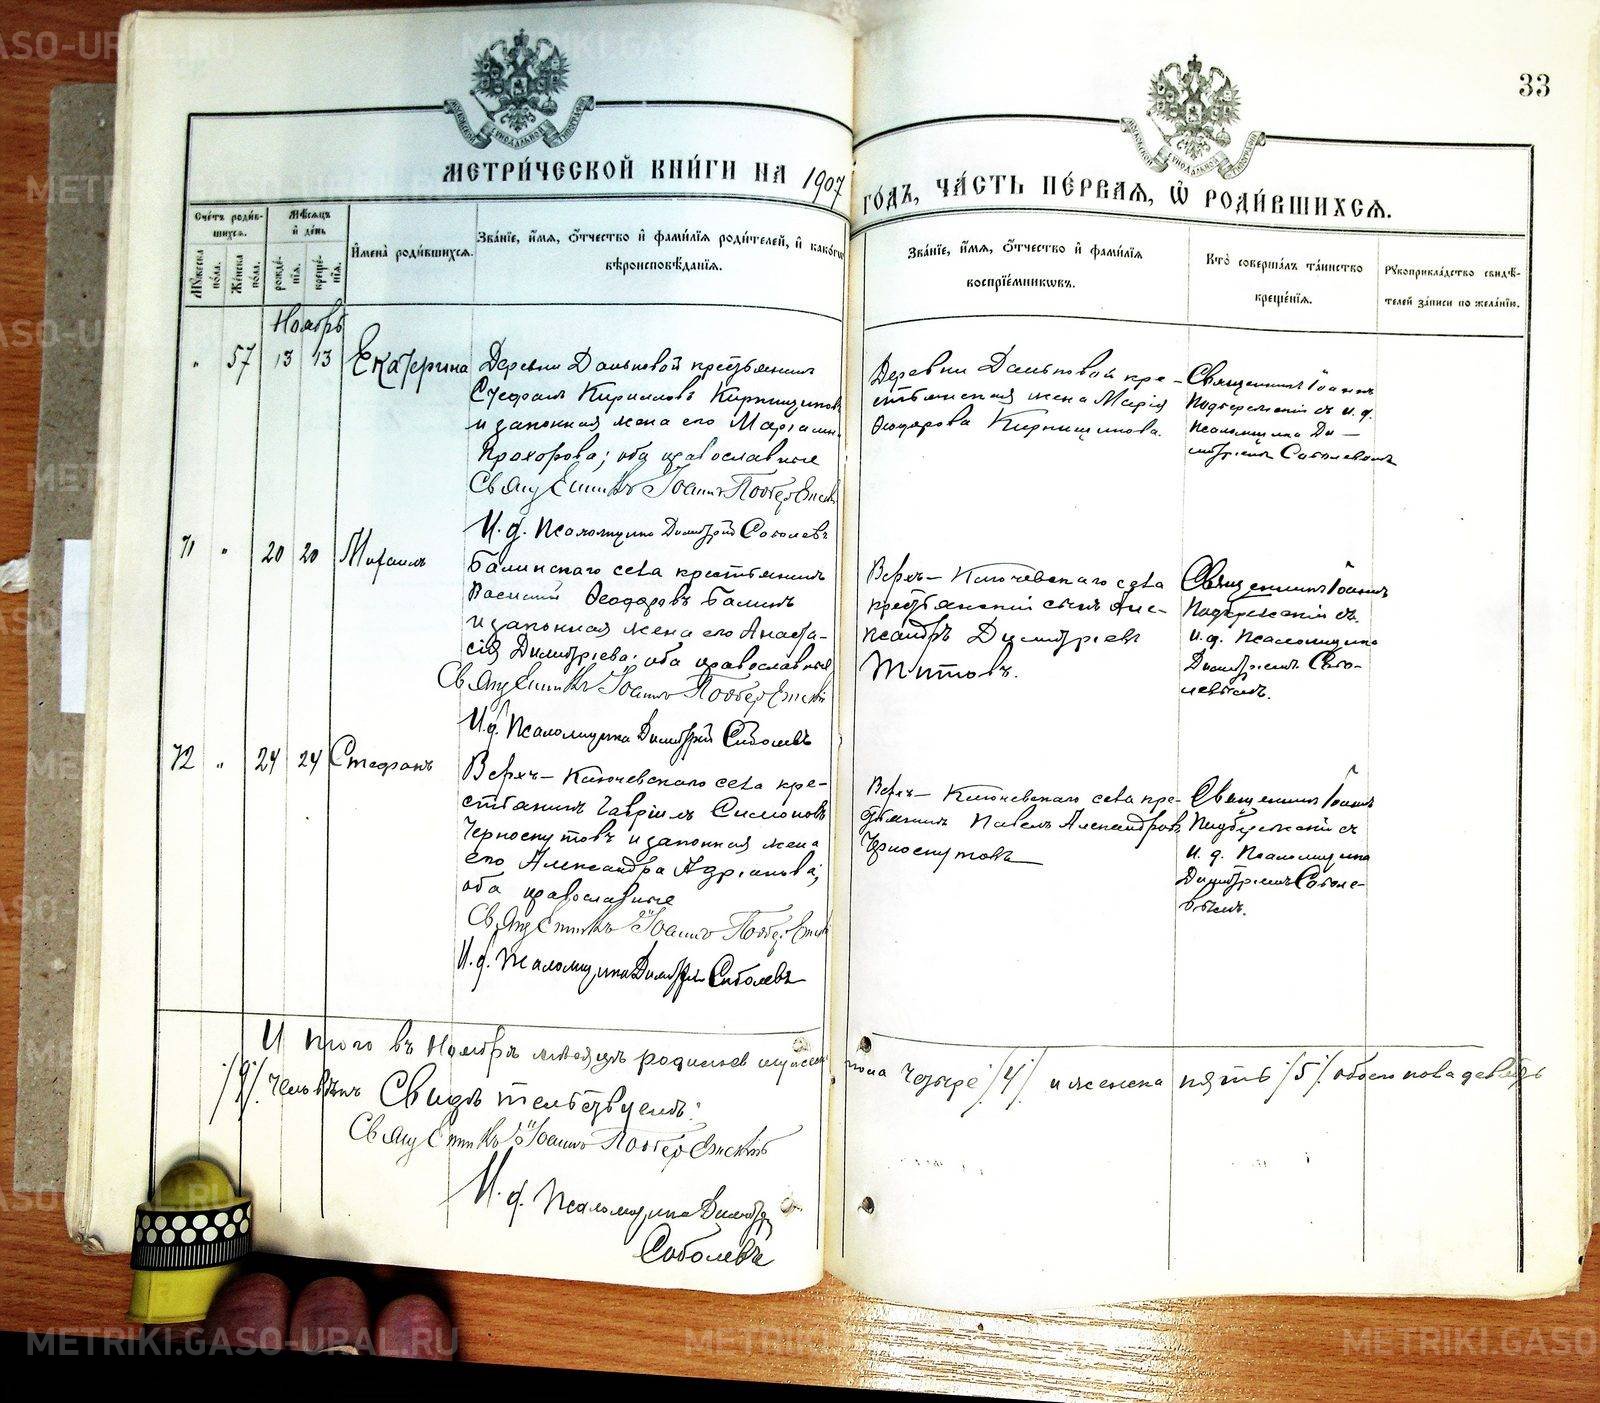 33
МЕТРИ́ЧЕСКОЙ КНИ́ГИ НА 1907 ГО́ДЪ, ЧА́СТЬ ПЕ́РВАЯ, Ѡ҆ РОДИ́ВШИХСѦ.
Сче́тъ роди́в-
шихсѧ.
Мꙋ́жеска по́ла.
Же́нска по́ла.
Мѣ́сѧцъ
и҆ де́нь
рожде́-
нїѧ.
креще́-
нїѧ.
И҆мена̀ роди́вшихсѧ.
Зва́нїе, и҆́мѧ, ѻ҆́тчество и҆ фами́лїѧ роди́телей, и҆ како́гѡ
вѣроисповѣ́данїѧ.
Зва́нїе, и҆́мѧ, ѻ҆́тчество и҆ фами́лїѧ
воспрїе́мникѡвъ.
Кто̀ соверша́лъ та́инство
креще́нїѧ.
Рꙋкоприкла́дство свидѣ́-
телей за́писи по жела́нїю.
Ноябрь
" 57 13 13 Екатерина
Деревни Даньковой крестьянинъ
Стефанъ Кирилловъ Кирпищиковъ
и законная жена его
Прохорова; оба православные
Священникъ Іоаннъ Подбережскій
И. д. Псаломщика Димитрій Соболевъ
Деревни Даньковой кре-
стьянская жена Марія
Ѳеодорова Кирпищикова.
Священникъ Іоаннъ
Подбережскій съ и. д.
псаломщика Ди-
митріемъ Соболевымъ
71 " 20 20 Михаилъ
Балинскаго села крестьянинъ
Василій Ѳеодоровъ Балинъ
и законная жена его Анаста-
сія Димитріева; оба православные
Священникъ Іоаннъ Подбережскій
И. д. Псаломщика Димитрій Соболевъ
Верхъ-Ключевскаго села
крестьянскій сынъ Але-
ксандръ Димитріевъ
Титовъ.
Священникъ Іоаннъ
Подбережскій съ
и. д. псаломщика
Димитріемъ Собо-
левымъ.
72 " 24 24 Стефанъ
Верхъ-Ключевскаго села кре-
стьянинъ Гавріилъ Симоновъ
Черноскутовъ и законная жена
его Александра Адріанова;
оба православные
Священникъ Іоаннъ Подбережскій
И. д. Псаломщика Димитрій Соболевъ
Верхъ-Ключевскаго села кре-
стьянинъ Павелъ Александровъ
Черноскутовъ
Священникъ Іоаннъ
Подбережскій съ
и. д. псаломщика
Димитріемъ Соболе-
вымъ.
Итого въ Ноябрѣ мѣсяцѣ родилось мужеска пола четыре /4/ и женска пять /5/ обоего пола девять
/9/ человѣкъ Свидѣтельствуемъ:
Священникъ Іоаннъ Подбережскій
И. д. Псаломщика Димитрій
Соболевъ
METRIKI.GASO-URAL.RU